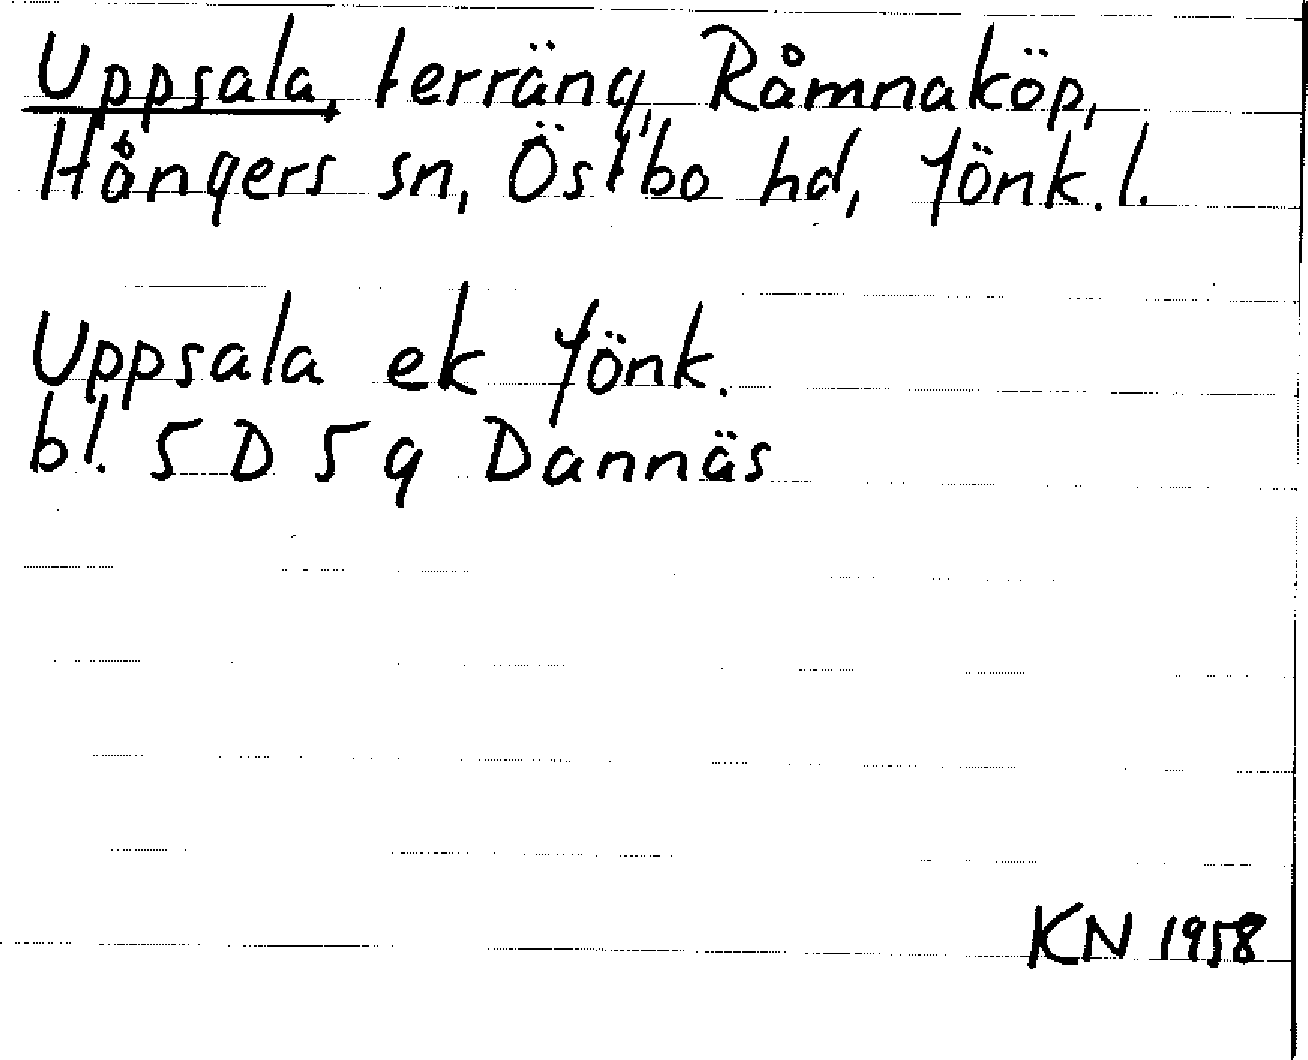 Uppsala, terräng, Råmnaköp,
Hångers sn, Östbo hd, Jönk. l.
Uppsala ek Jönk.
bl. 5 D 5 g Dannäs
KN 1958